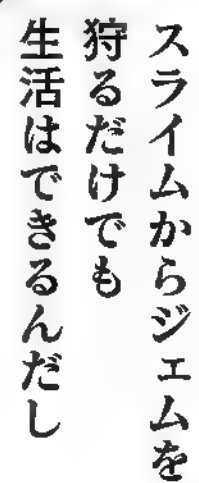 スライムからジェムを
狩るだけでも
生活はできるんだし